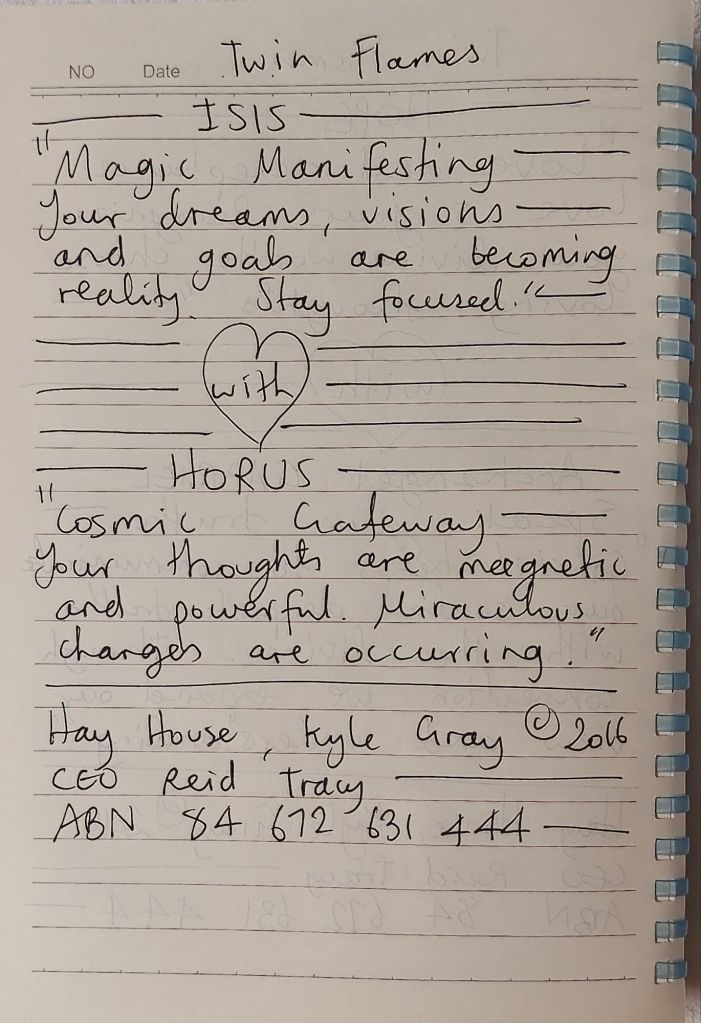 Twin Flames
NO Date
ISIS
"Magic Manifesting
Your dreams, visions
and goals are becoming
reality. Stay focused."
with
HORUS
"Cosmic Gateway
Your thoughts are magnetic
and powerful. Miraculous
changes are occurring."
Hay House, Kyle Gray © 2016
CEO Reid Tracy
ABN 84 672 631 444